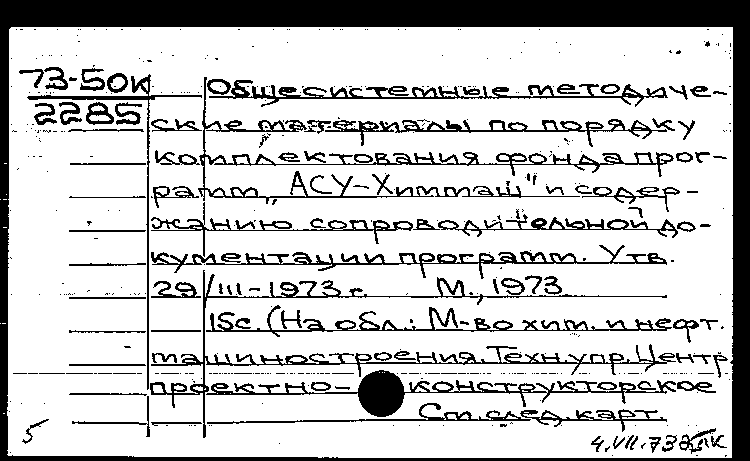 73-50к
2285
Общесистемные методиче-
ские материалы по порядку
комплектования фонда прог-
рамм „АСУ-Химмаш" и содер-
жанию сопроводительной до-
кументации программ. Утв.
29/III-1973 г. М., 1973
15с. (На обл.: М-во хим. и нефт.
машиностроения. Техн. упр. Центр.
проектно- конструкторское
См. след. карт.
5
4.VII.73